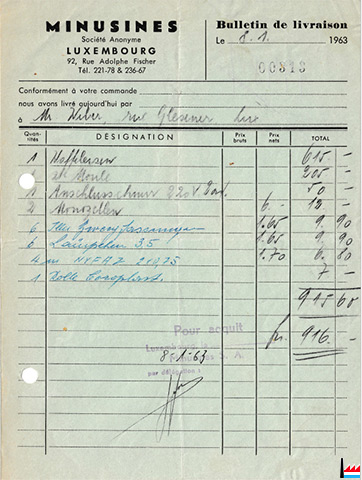 MINUSINES
Société Anonyme
LUXEMBOURG
92, Rue Adolphe Fischer
Tél. 221-78 & 236-67
Bulletin de livraison
Le 8. 1. 1963
00313
Conformément à votre commande
nous avons livré aujourd'hui par
à Mr Weber rue Glesener
Quantités DÉSIGNATION Prix bruts Prix nets TOTAL
1 Waffeleisen 615 —
1 205 —
1 Anschlusschnur 220V 50 —
2 Monozellen 6 — 12 —
6 1.65 9.90
6 Lämpchen 3,5 1.65 9.90
4 m NYFAZ 2x0,75 1.70 6.80
1 Rolle 7 —
915 60
fr. 916 —
Pour acquit
8-1-63
par délégation